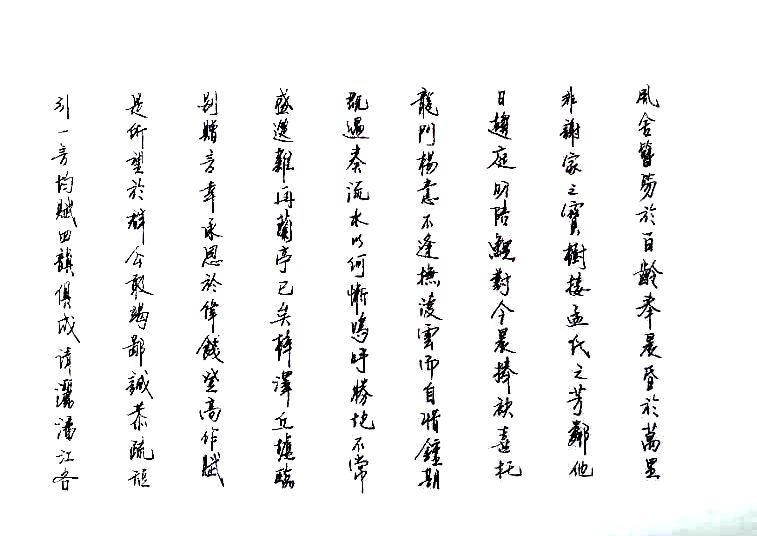 風舍簪笏於百齡奉晨昏於萬里
非謝家之寶樹接孟氏之芳鄰他
日趨庭叨陪鯉對今晨捧袂喜托
龍門楊意不逢撫凌雲而自惜鍾期
既遇奏流水以何慚嗚呼勝地不常
盛筵難再蘭亭已矣梓澤丘墟臨
別贈言幸承恩於偉餞登高作賦
是所望於群公敢竭鄙誠恭疏短
引一言均賦四韻俱成請灑潘江各